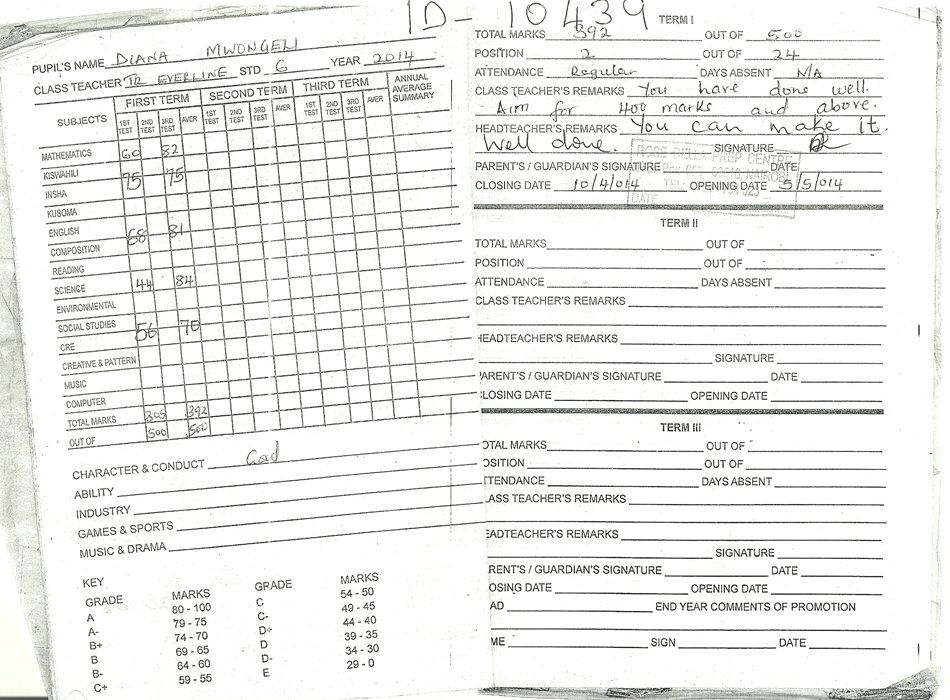 ID- 10439
PUPIL'S NAME DIANA MWONGELI
CLASS TEACHER TR EVERLINE STD 6 YEAR 2014
SUBJECTS FIRST TERM SECOND TERM THIRD TERM ANNUAL AVERAGE SUMMARY
1ST TEST 2ND TEST 3RD TEST AVER 1ST TEST 2ND TEST 3RD TEST AVER 1ST TEST 2ND TEST 3RD TEST AVER
MATHEMATICS 60 82
KISWAHILI 75 75
INSHA
KUSOMA
ENGLISH 68 81
COMPOSITION
READING
SCIENCE 44 84
ENVIRONMENTAL
SOCIAL STUDIES 56 70
CRE
CREATIVE & PATTERN
MUSIC
COMPUTER
TOTAL MARKS 305 392
OUT OF 500 500
CHARACTER & CONDUCT Good
ABILITY
INDUSTRY
GAMES & SPORTS
MUSIC & DRAMA
KEY
GRADE MARKS GRADE MARKS
A 80 - 100 C 54 - 50
A- 79 - 75 C- 49 - 45
B+ 74 - 70 D+ 44 - 40
B 69 - 65 D 39 - 35
B- 64 - 60 D- 34 - 30
C+ 59 - 55 E 29 - 0
TERM I
TOTAL MARKS 392 OUT OF 500
POSITION 2 OUT OF 24
ATTENDANCE Regular DAYS ABSENT N/A
CLASS TEACHER'S REMARKS You have done well.
Aim for 400 marks and above.
HEADTEACHER'S REMARKS You can make it.
Well done. SIGNATURE
PREP CENTRE
PARENT'S / GUARDIAN'S SIGNATURE DATE
NAIROBI
CLOSING DATE 10/4/014 OPENING DATE 5/5/014
DATE
TERM II
TOTAL MARKS OUT OF
POSITION OUT OF
ATTENDANCE DAYS ABSENT
CLASS TEACHER'S REMARKS
HEADTEACHER'S REMARKS
SIGNATURE
PARENT'S / GUARDIAN'S SIGNATURE DATE
CLOSING DATE OPENING DATE
TERM III
OTAL MARKS OUT OF
OSITION OUT OF
TTENDANCE DAYS ABSENT
LASS TEACHER'S REMARKS
EADTEACHER'S REMARKS
SIGNATURE
RENT'S / GUARDIAN'S SIGNATURE DATE
OSING DATE OPENING DATE
AD END YEAR COMMENTS OF PROMOTION
ME SIGN DATE